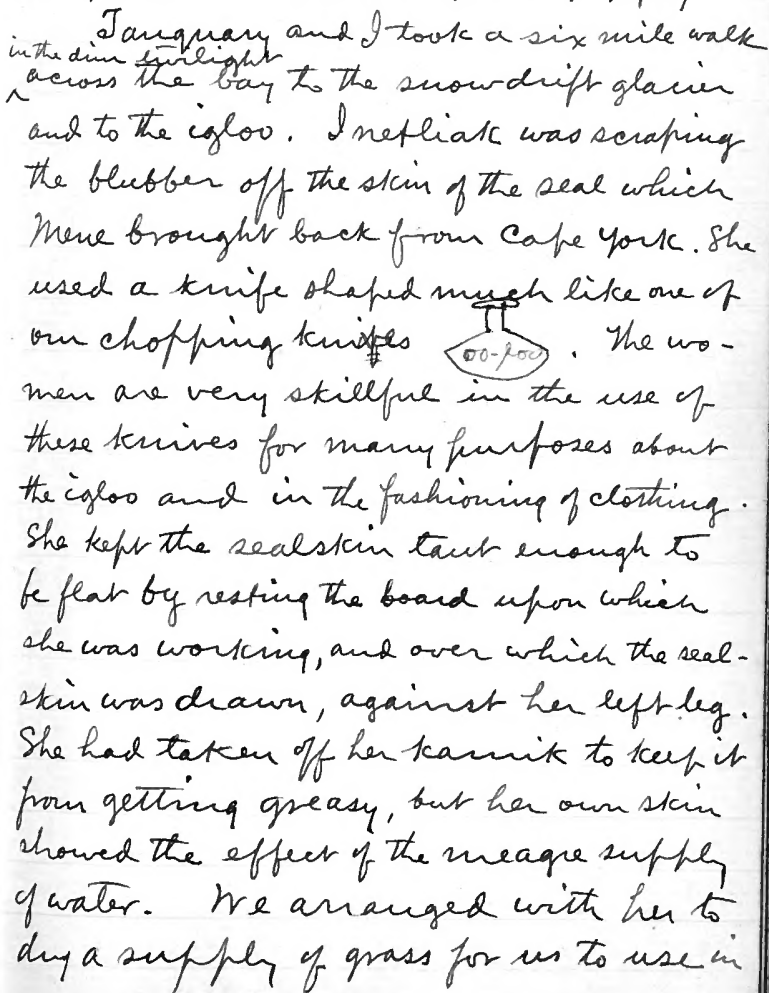 Tanquary and I took a six mile walk
in the dim twilight
across the bay to the snowdrift glacier
and to the igloo. Inetliak was scraping
the blubber off the skin of the seal which
Mene brought back from Cape York. She
used a knife shaped much like one of
our chopping knives oo-loo. The wo-
men are very skillful in the use of
these knives for many purposes about
the igloo and in the fashioning of clothing.
She kept the sealskin taut enough to
be flat by resting the board upon which
she was working, and over which the seal-
skin was drawn, against her left leg.
She had taken off her kamik to keep it
from getting greasy, but her own skin
showed the effect of the meagre supply
of water. We arranged with her to
dry a supply of grass for us to use in